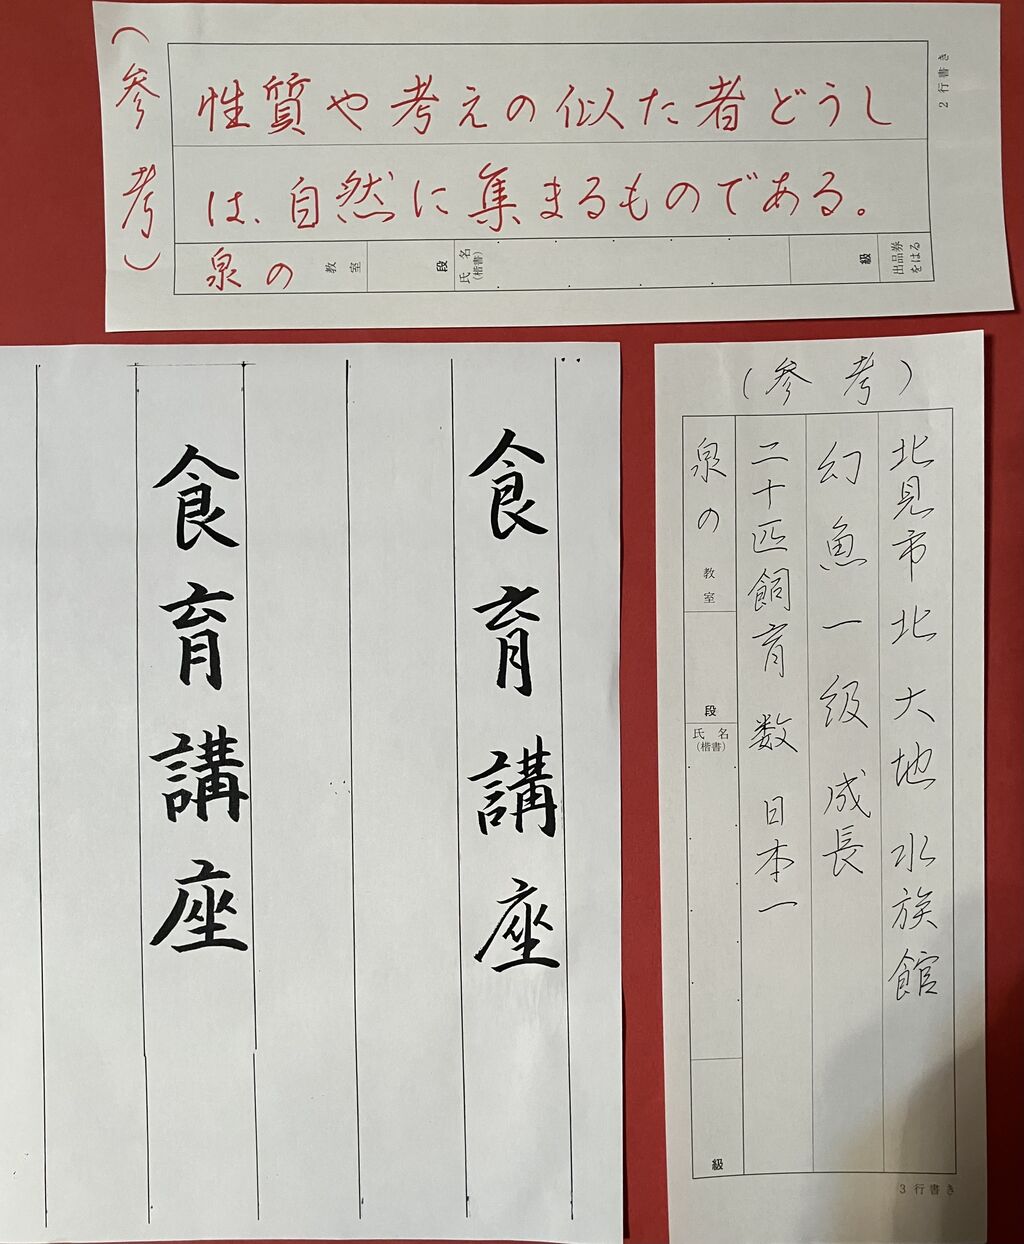 (参考)
性質や考えの似た者どうし
は、自然に集まるものである。
泉の 教室 段 氏名(楷書) 級 出品券をはる
2行書き
食育講座
食育講座
(参考)
北見市北大地水族館
幻魚一級成長
二十匹飼育数日本一
泉の 教室 段 氏名(楷書) 級
3行書き